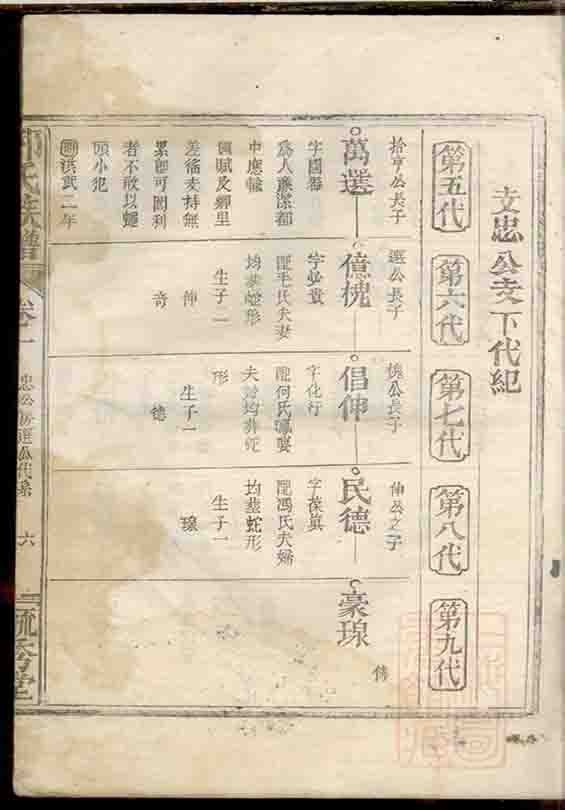 文忠公支下代紀
第五代
第六代
第七代
第八代
第九代
拾亨公長子
萬選
字國器
為人廉潔都
中應輸
國賦及鄉里
差徭支持無
累即可間利
者不敢以蠅
頭小犯
洪武二年
選公長子
億槐
字必貴
配毛氏夫妻
均葬蛇形
生子二
伸
奇
槐公長子
倡伸
字化行
配何氏
夫婦均葬蛇
形
生子一
德
伸公之子
民德
字葆眞
配馮氏夫婦
均葬蛇形
生子一
瑔
豪瑔
傳
氏族譜
卷一
忠公房選公代系
六